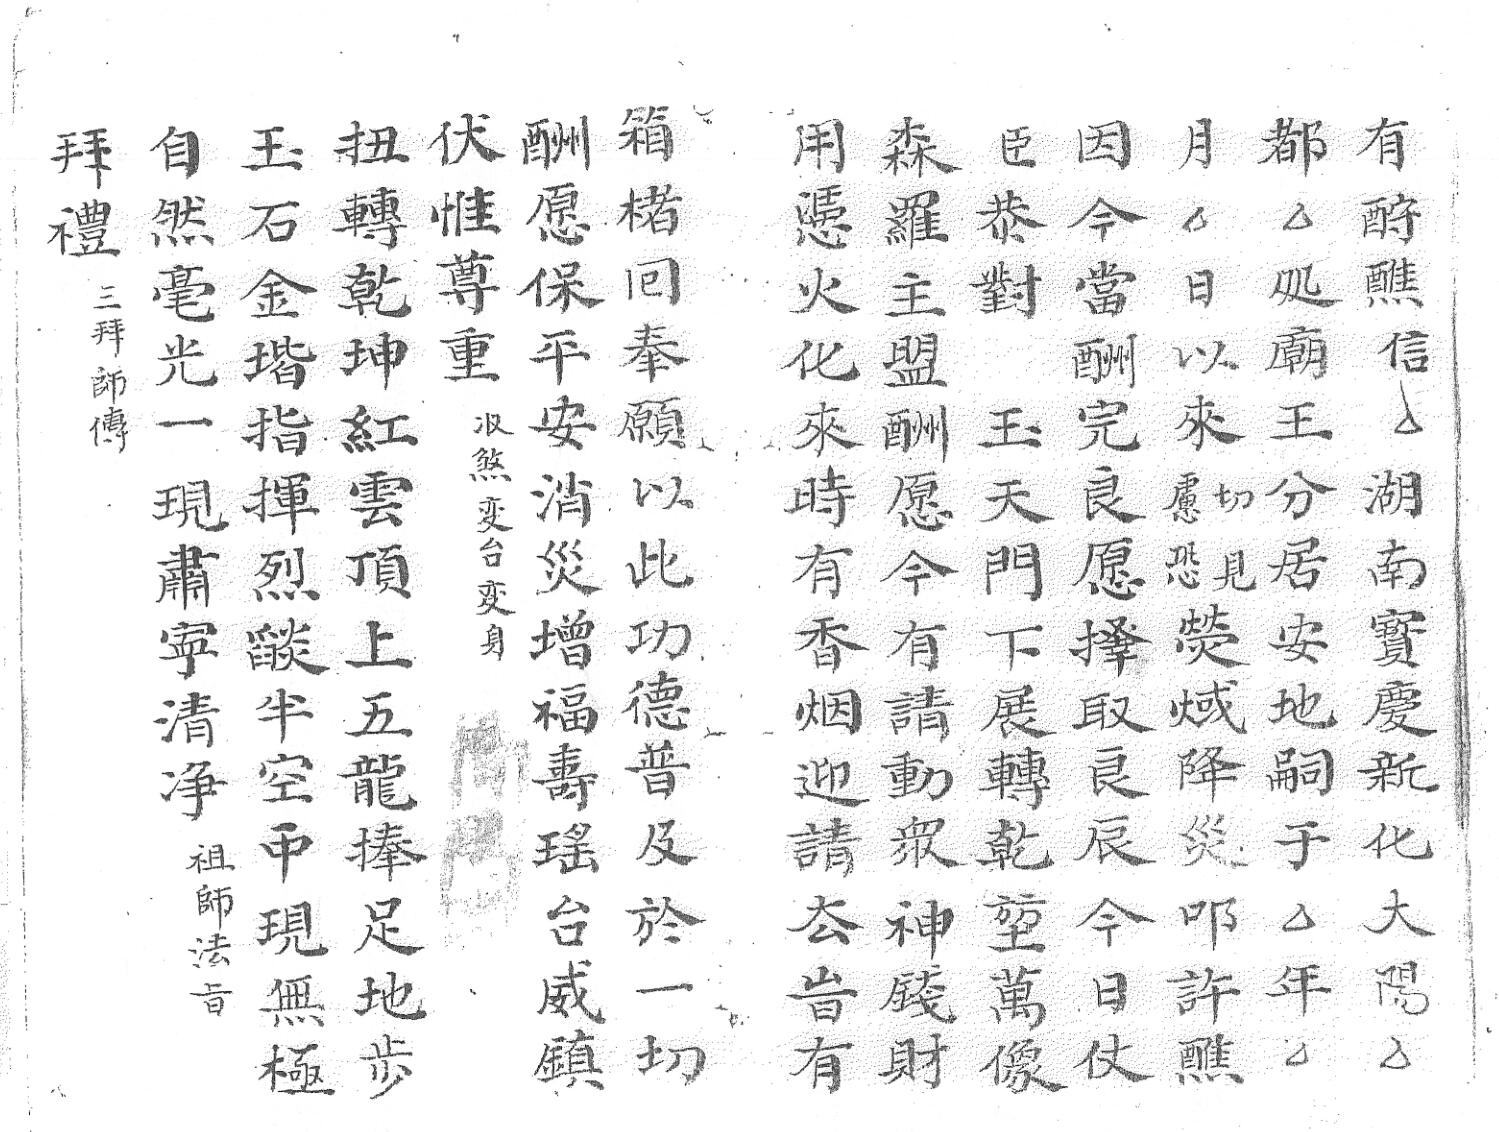 有酧醮信厶湖南寳慶新化大陽厶
都厶処廟王分居安地嗣于厶年厶
月厶日以來切見慮恐熒惑降災叩許醮
因今當酬完良愿擇取良辰今日仗
臣恭對玉天門下展轉乾堃萬像
森羅主盟酬愿今有請動衆神錢財
用憑火化來時有香烟迎請去旹有
箱楮回奉願以此功德普及於一切
酬愿保平安消災增福壽瑤台威鎮
伏惟尊重 収煞变台変身
扭轉乾坤紅雲頂上五龍捧足地步
玉石金堦指揮烈燄半空中現無極
自然毫光一現肅寧清净 祖師法旨
拜禮 三拜師傳